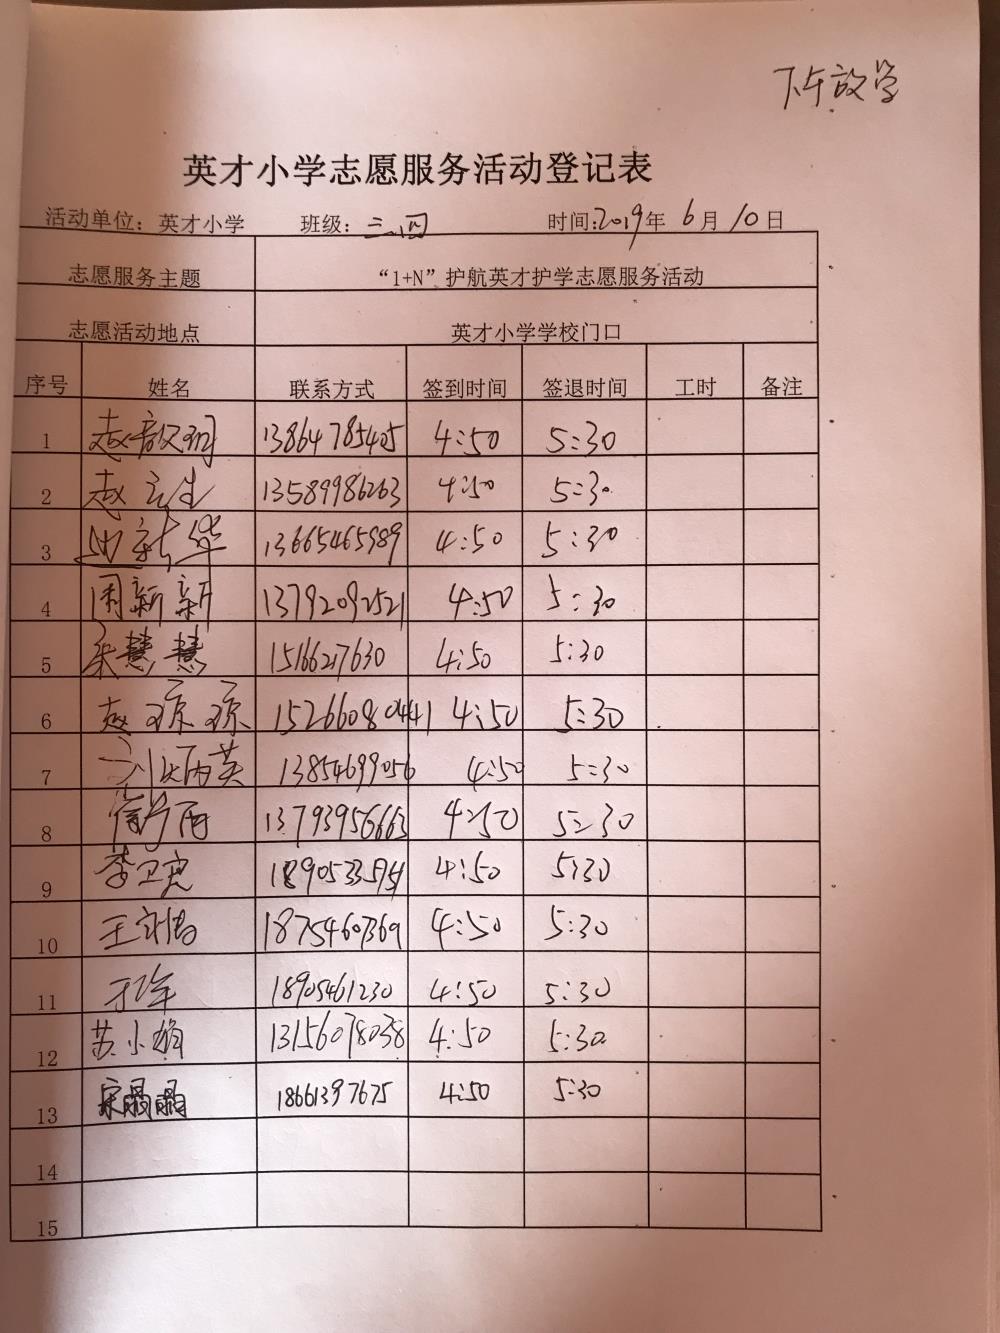 下午放学
英才小学志愿服务活动登记表
活动单位：英才小学 班级：三.四 时间：2019年 6月 10日
志愿服务主题 “1+N”护航英才护学志愿服务活动
志愿活动地点 英才小学学校门口
序号 姓名 联系方式 签到时间 签退时间 工时 备注
1 赵 13864785405 4:50 5:30
2 赵云生 13589986263 4:50 5:30
3 13665465989 4:50 5:30
4 周新新 13792092521 4:50 5:30
5 宋慧慧 15166217630 4:50 5:30
6 赵琼琼 15266080441 4:50 5:30
7 刘炳英 13854699056 4:50 5:30
8 13793956663 4:50 5:30
9 李卫 4:50 5:30
10 王 18754607369 4:50 5:30
11 18905461230 4:50 5:30
12 苏小娟 13156078038 4:50 5:30
13 宋晶晶 18661397675 4:50 5:30
14
15